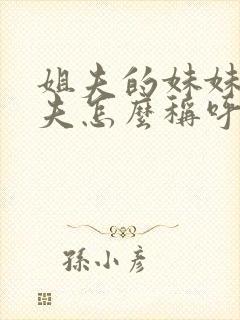 姐夫的妹妹
夫怎麼稱呼
孫小彥